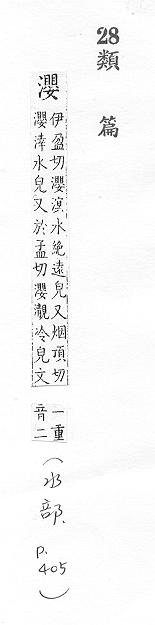 28
類篇
瀴
伊盈切瀴溟水絶遠皃又烟頂切
瀴涬水皃又於孟切瀴瀙冷皃文
一重
音二
(水部.
p.
405)